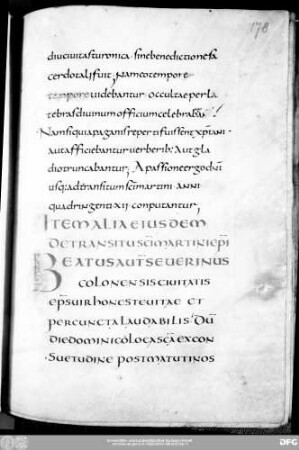 178
diu ciuitas turonica · sine benedictione sa
cerdotali fuit, Nam eo tempore
tempore uidebantur occultae per la
tebras diuinum officium celebrabāt!
Nam siqui a paganis repertifuissent xp̄iani ·
aut afficiebantur uerberib: Aut gla
dio truncabantur, A passione ergo dn̄i
usq: ad transitum sc̄i martini anni
quadringenti xii conputantur,
ITEM ALIA EIUSDEM
DE TRANSITU SC̄I MARTINI EP̄I
BEATUS AUT̄ SEUERINUS
COLONENSIS CIUITATIS
EP̄S UIR HONESTE UITAE ET
PER CUNCTA LAUDABILIS · DŪ
DIE DOMINICO LOCA SC̄A EX CON
SUETUDINE POST MATUTINOS
DFG